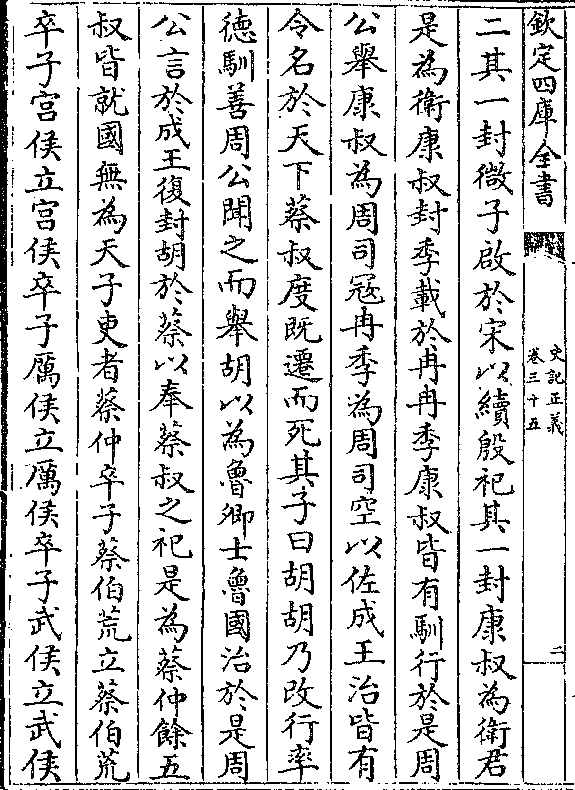 欽定四庫全書
史記正義
卷三十五
二
二其一封微子啟於宋以續殷祀其一封康叔為衛君
是為衛康叔封季載於冉冉季康叔皆有馴行於是周
公舉康叔為周司寇冉季為周司空以佐成王治皆有
令名於天下蔡叔度既遷而死其子曰胡胡乃改行率
德馴善周公聞之而舉胡以為魯卿士魯國治於是周
公言於成王復封胡於蔡以奉蔡叔之祀是為蔡仲餘五
叔皆就國無為天子吏者蔡仲卒子蔡伯荒立蔡伯荒
卒子宮侯立宮侯卒子厲侯立厲侯卒子武侯立武侯